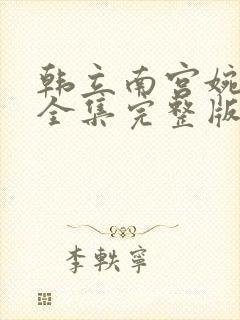 韩立南宫婉
全集完整版
李轶宁